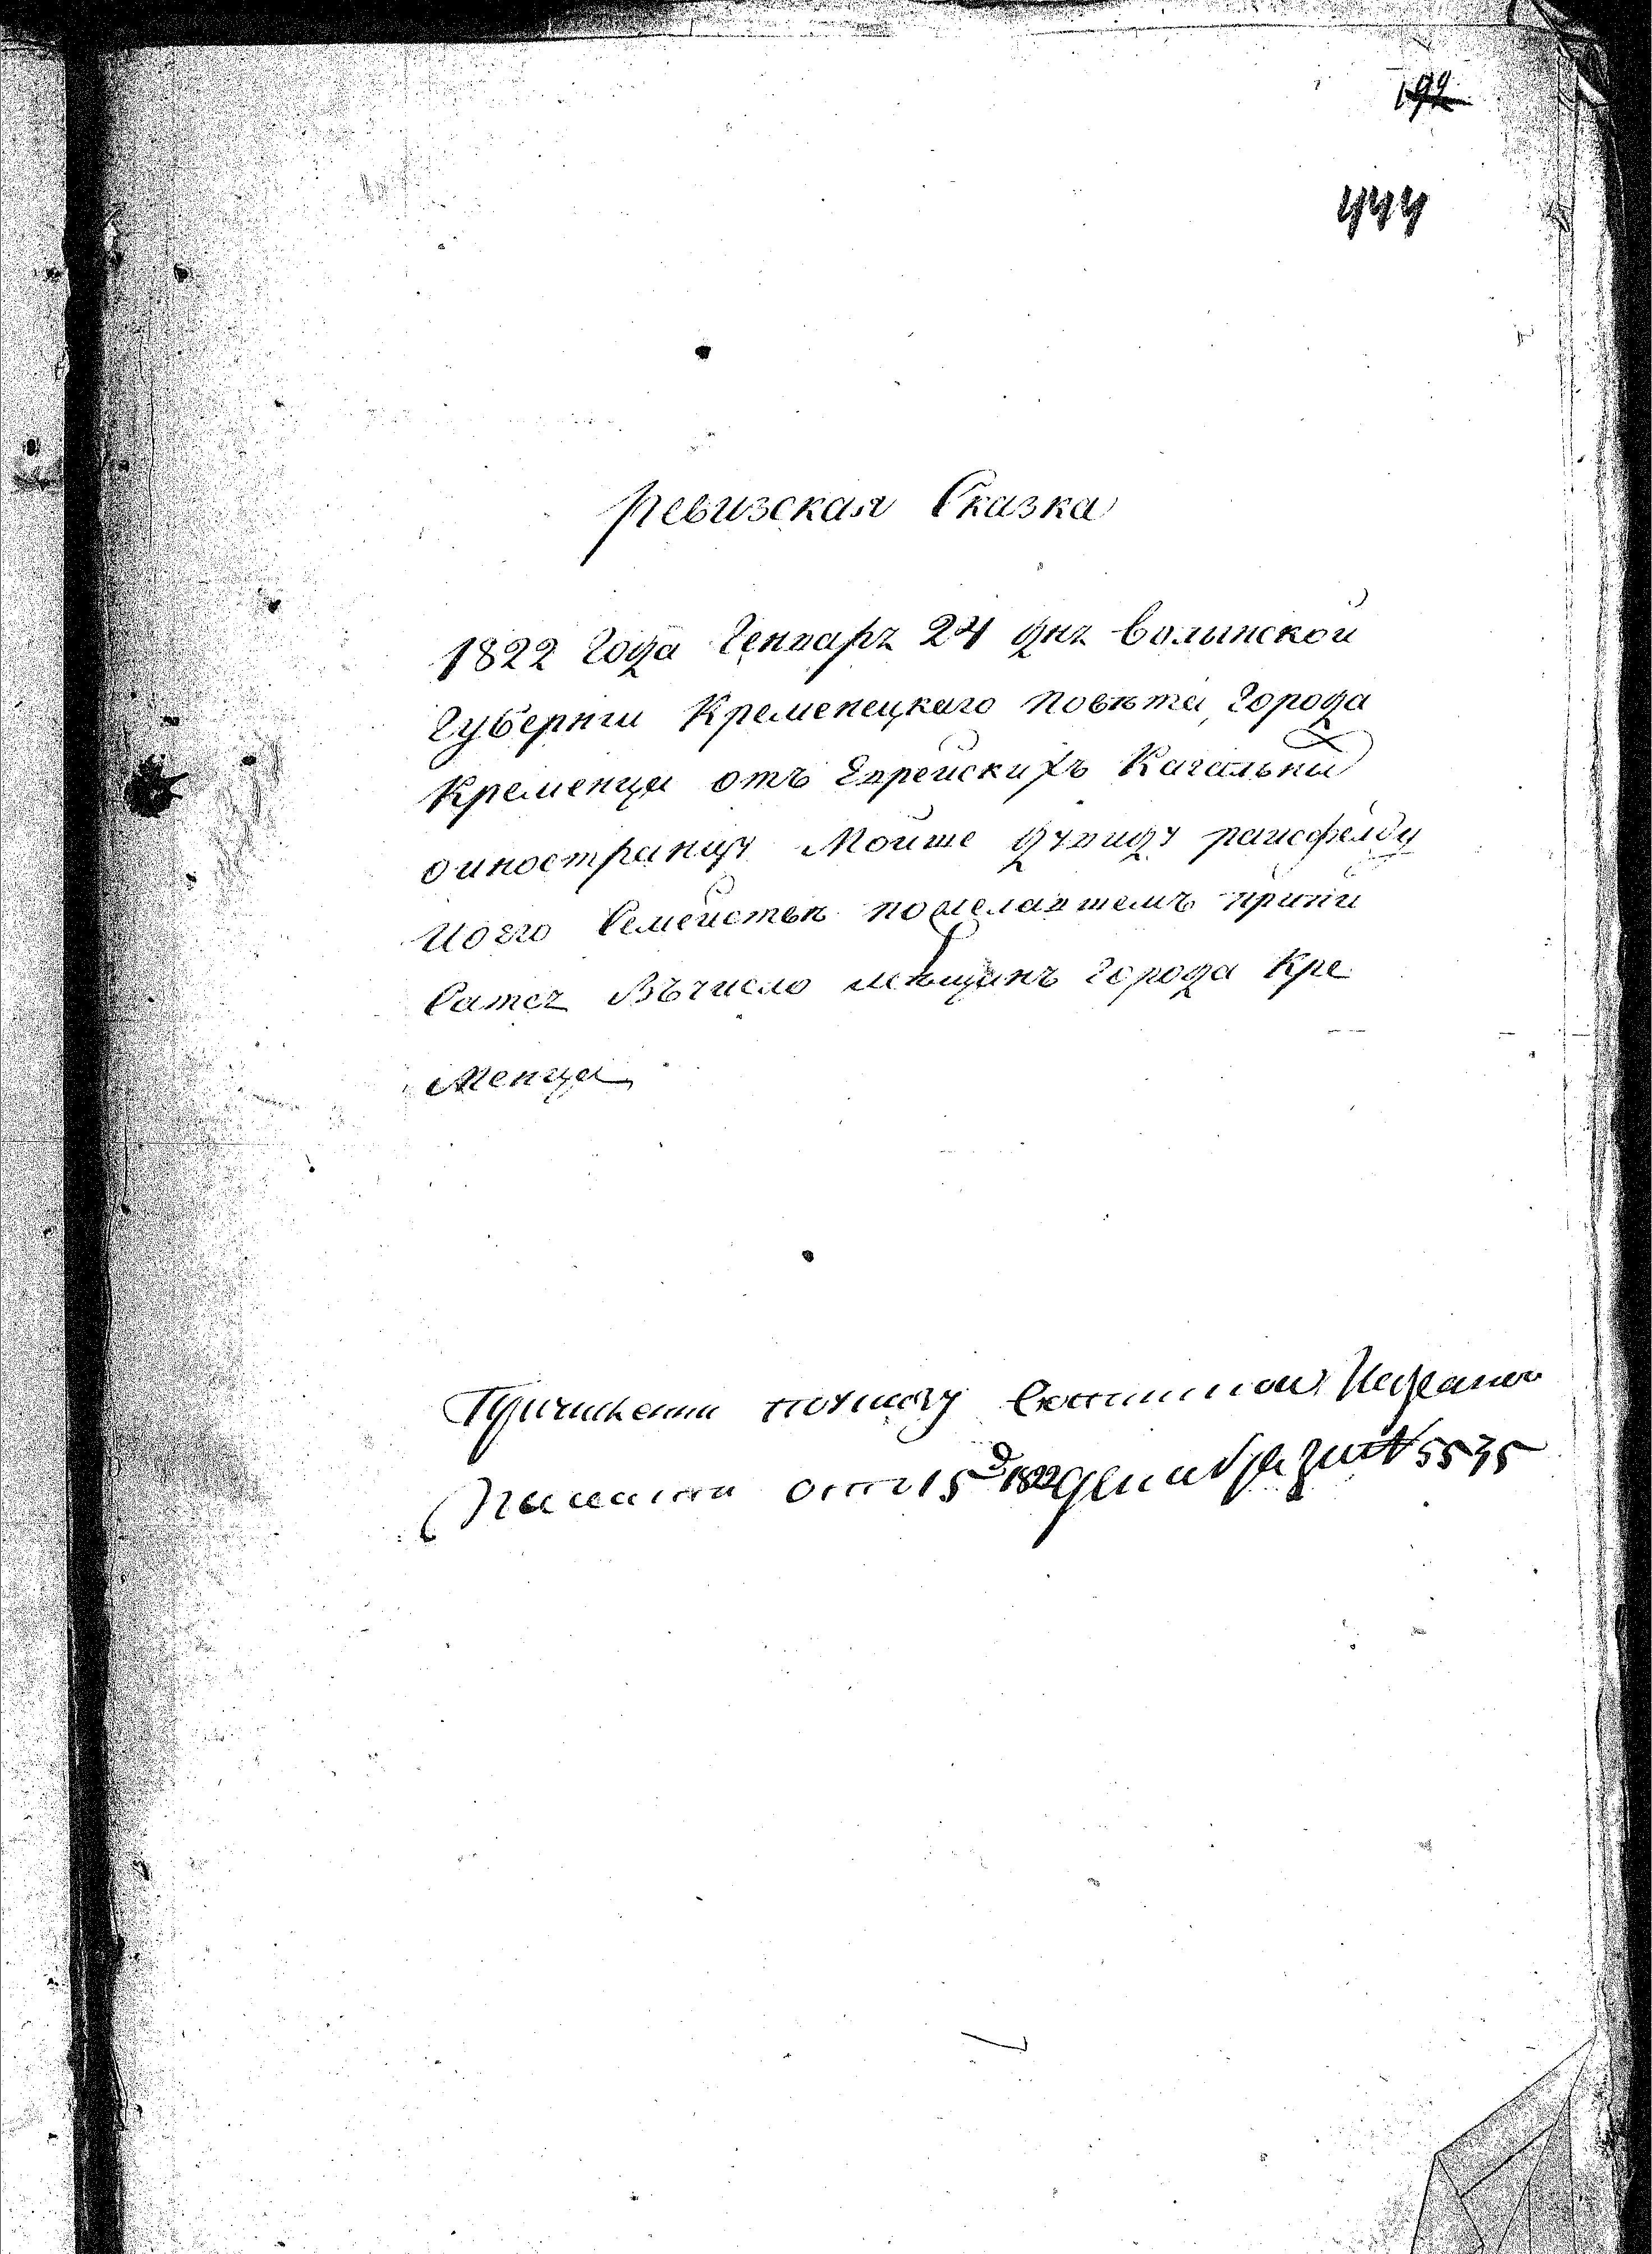 192
444
Ревизская Сказка
1822 Года Генваря 24 дня Волынской
Губернии Кременецкаго Повѣта, Города
Кременца отъ Еврейскихъ Кагальны
о иностранцу Мойше Дувиду Раисфелду
И оего Семействѣ пожелавшемъ припи
Сатся Въчисло мещанъ города Кре
Менца
Причисленъ по Указу Казенной
Палаты отъ 15 д 1822 декабря за № 5535